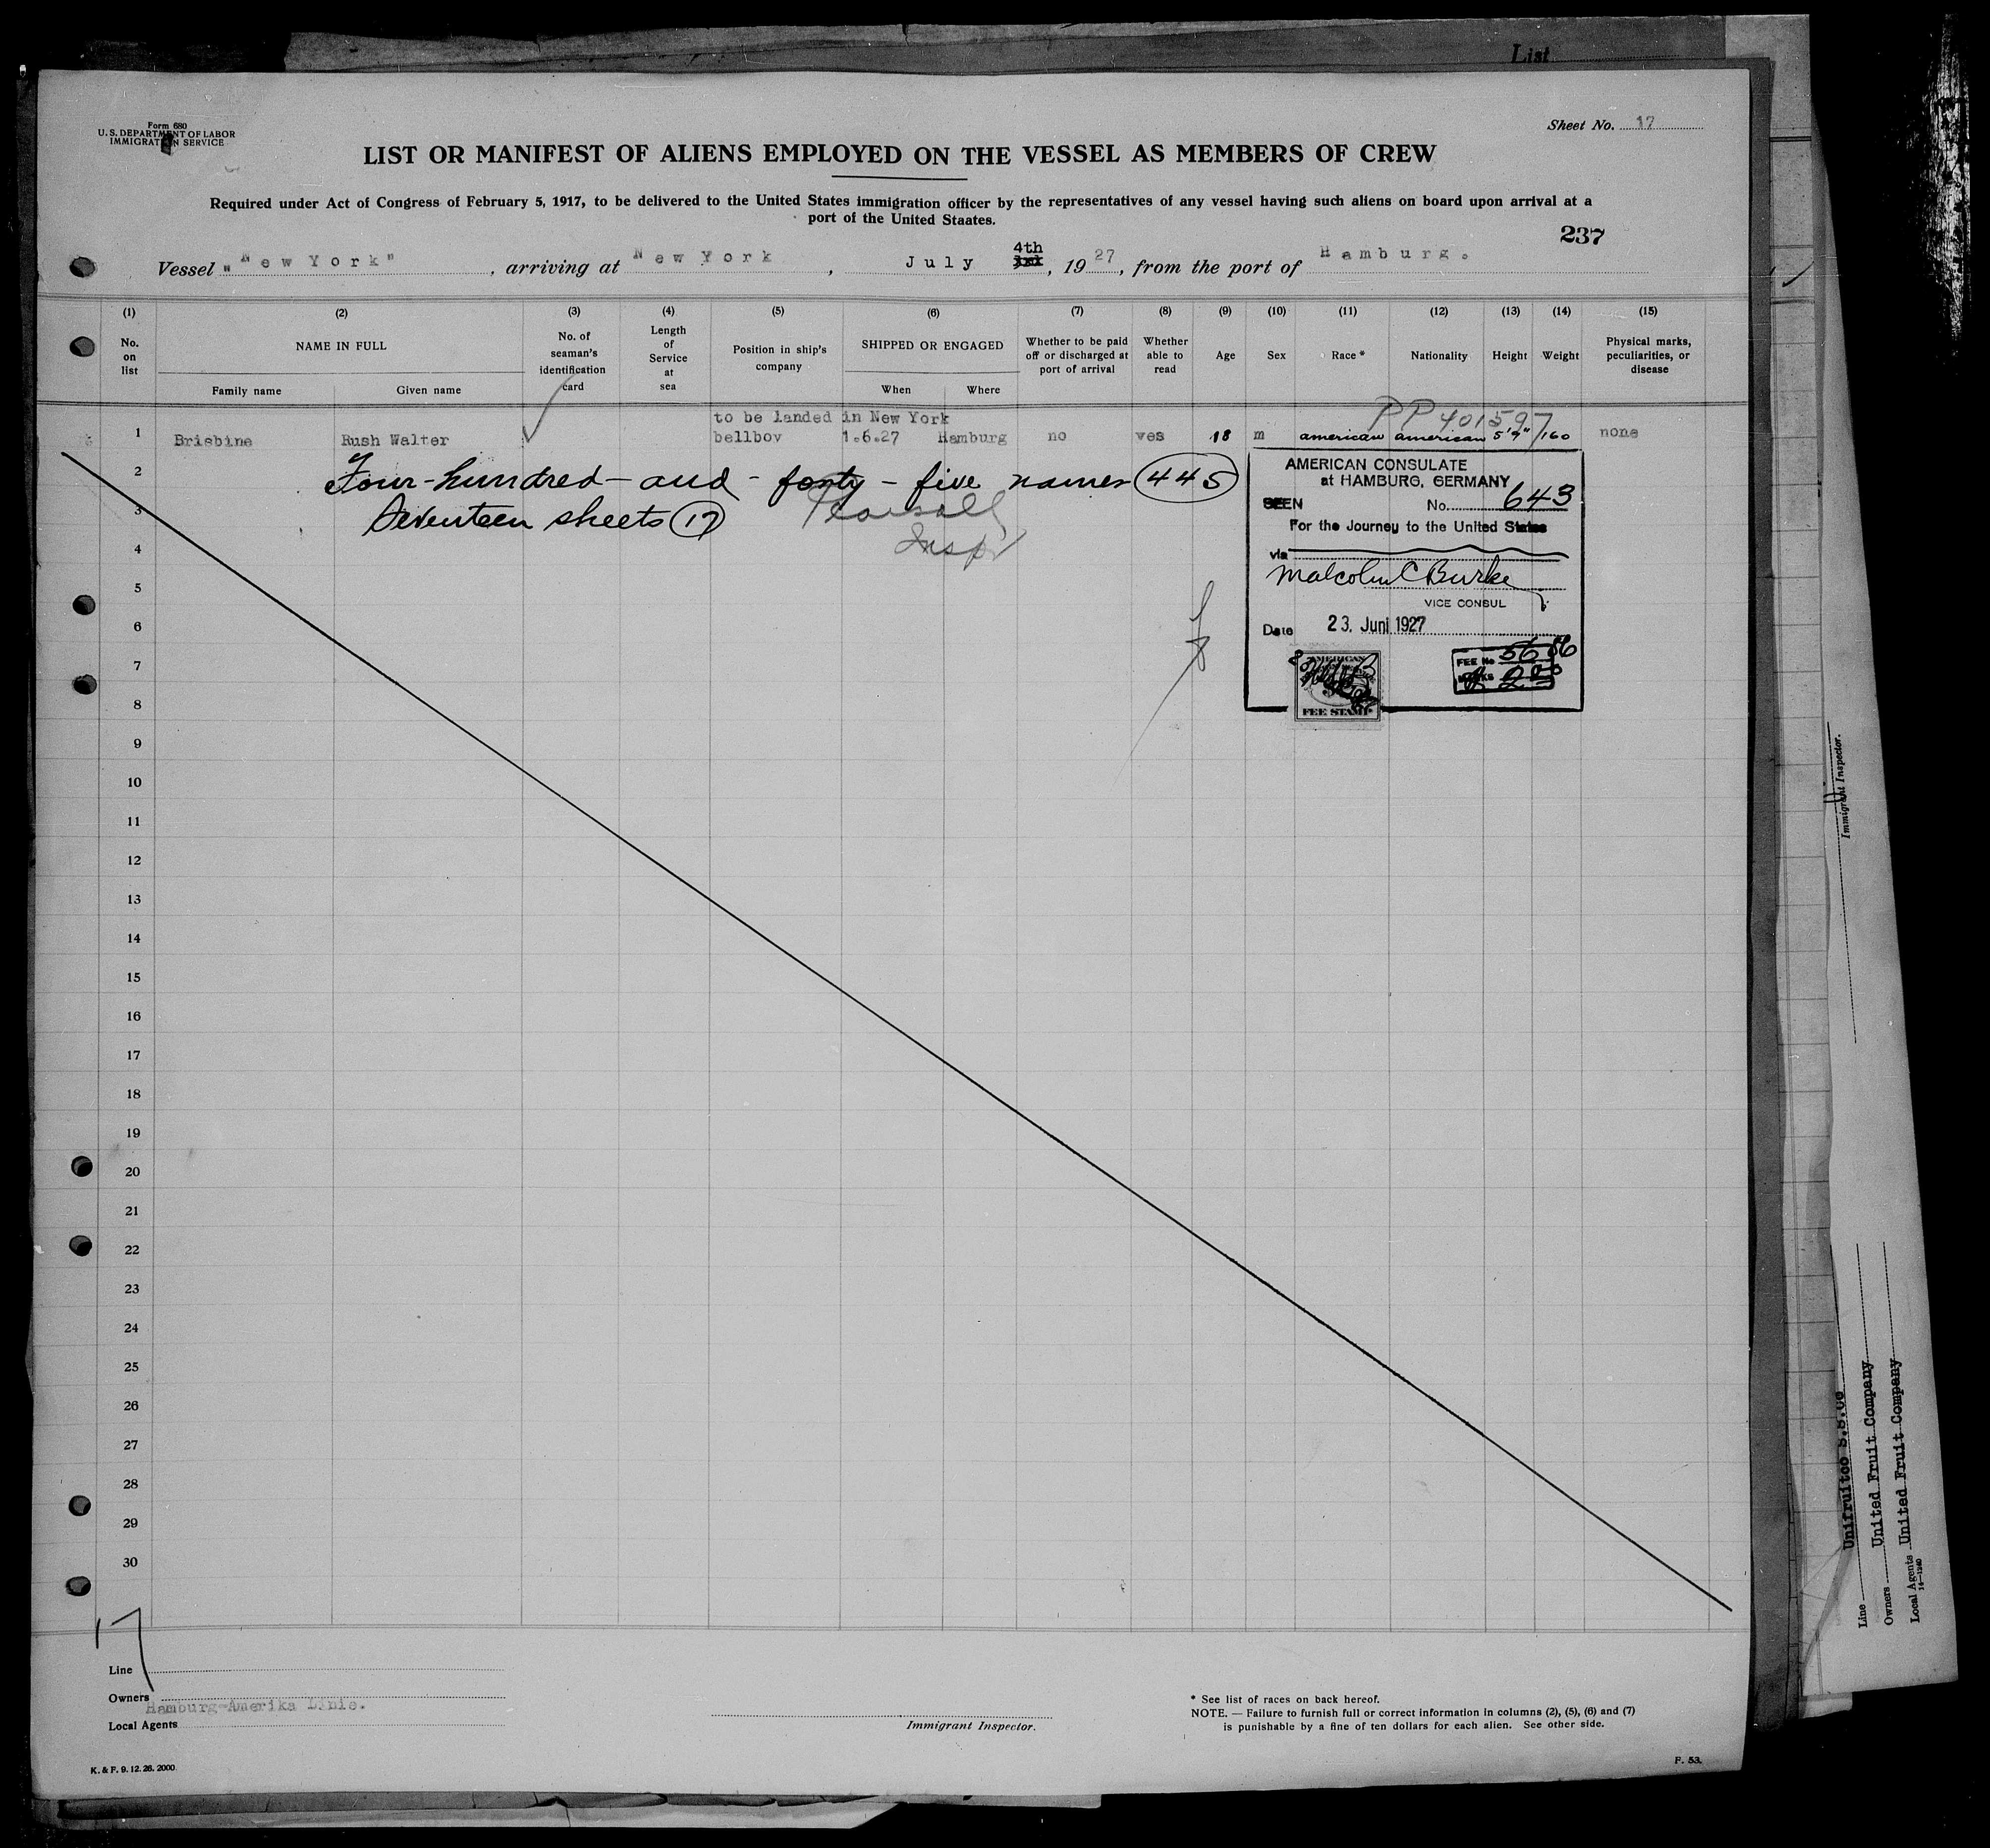 List
Form 680
U. S. DEPARTMENT OF LABOR
IMMIGRATION SERVICE
Sheet No. 17
LIST OR MANIFEST OF ALIENS EMPLOYED ON THE VESSEL AS MEMBERS OF CREW
Required under Act of Congress of February 5, 1917, to be delivered to the United States immigration officer by the representatives of any vessel having such aliens on board upon arrival at a
port of the United Staates.
237
4th
Vessel "New York", arriving at New York, July 3rd, 1927, from the port of Hamburg.
(1) (2) (3) (4) (5) (6) (7) (8) (9) (10) (11) (12) (13) (14) (15)
No. on list
NAME IN FULL
Family name Given name
No. of seaman's identification card
Length of Service at sea
Position in ship's company
SHIPPED OR ENGAGED
When Where
Whether to be paid off or discharged at port of arrival
Whether able to read
Age
Sex
Race *
Nationality
Height
Weight
Physical marks, peculiarities, or disease
to be landed in New York
PP 401597
1 Brisbine Rush Walter bellboy 1.6.27 Hamburg no yes 18 m american american 5'9" 160 none
2 Four-hundred-and-forty-five names 445
3 Seventeen sheets 17 Pearsall
4 Insp
5
6
7
8
9
10
11
12
13
14
15
16
17
18
19
20
21
22
23
24
25
26
27
28
29
30
AMERICAN CONSULATE
at HAMBURG, GERMANY
SEEN No. 643
For the Journey to the United States
via
Malcolm C Burke
VICE CONSUL
Date 23. Juni 1927
AMERICAN
FEE STAMP
FEE No 5686
MARKS
17
Line
Owners
Hamburg-Amerika Linie.
Local Agents
Immigrant Inspector.
* See list of races on back hereof.
NOTE. — Failure to furnish full or correct information in columns (2), (5), (6) and (7)
is punishable by a fine of ten dollars for each alien. See other side.
K. & F. 9. 12. 26. 2000
F. 53.
Immigrant Inspector.
Unifruitco S.S. Co
Line
Owners United Fruit Company
Local Agents United Fruit Company